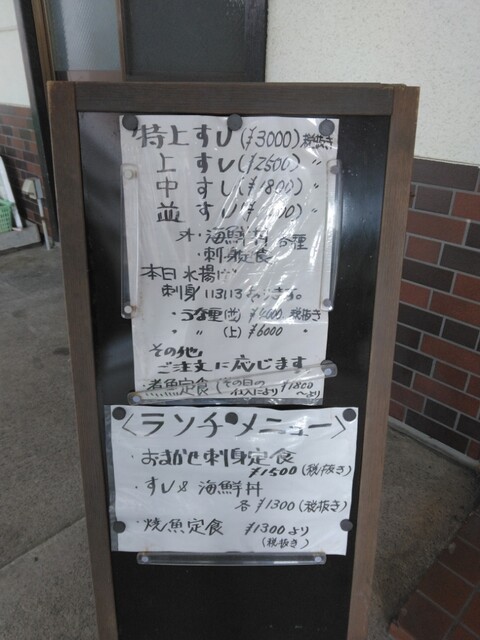 特上すし(¥3000)税抜き
上すし(¥2500)〃
中すし(¥1800)〃
並すし(¥ 00)〃
・海鮮丼 各種
・刺身定食
本日水揚げ
刺身いろいろあります。
・うな重(並)¥4000 税抜き
〃 (上)¥6000 〃
その他
ご注文に応じます
・煮魚定食(その日の仕入により ¥1800〜より
〈ランチ・メニュー〉
・おまかせ刺身定食
¥1500(税抜き)
・すし & 海鮮丼
各¥1300(税抜き)
・焼魚定食 ¥1300より
(税抜き)